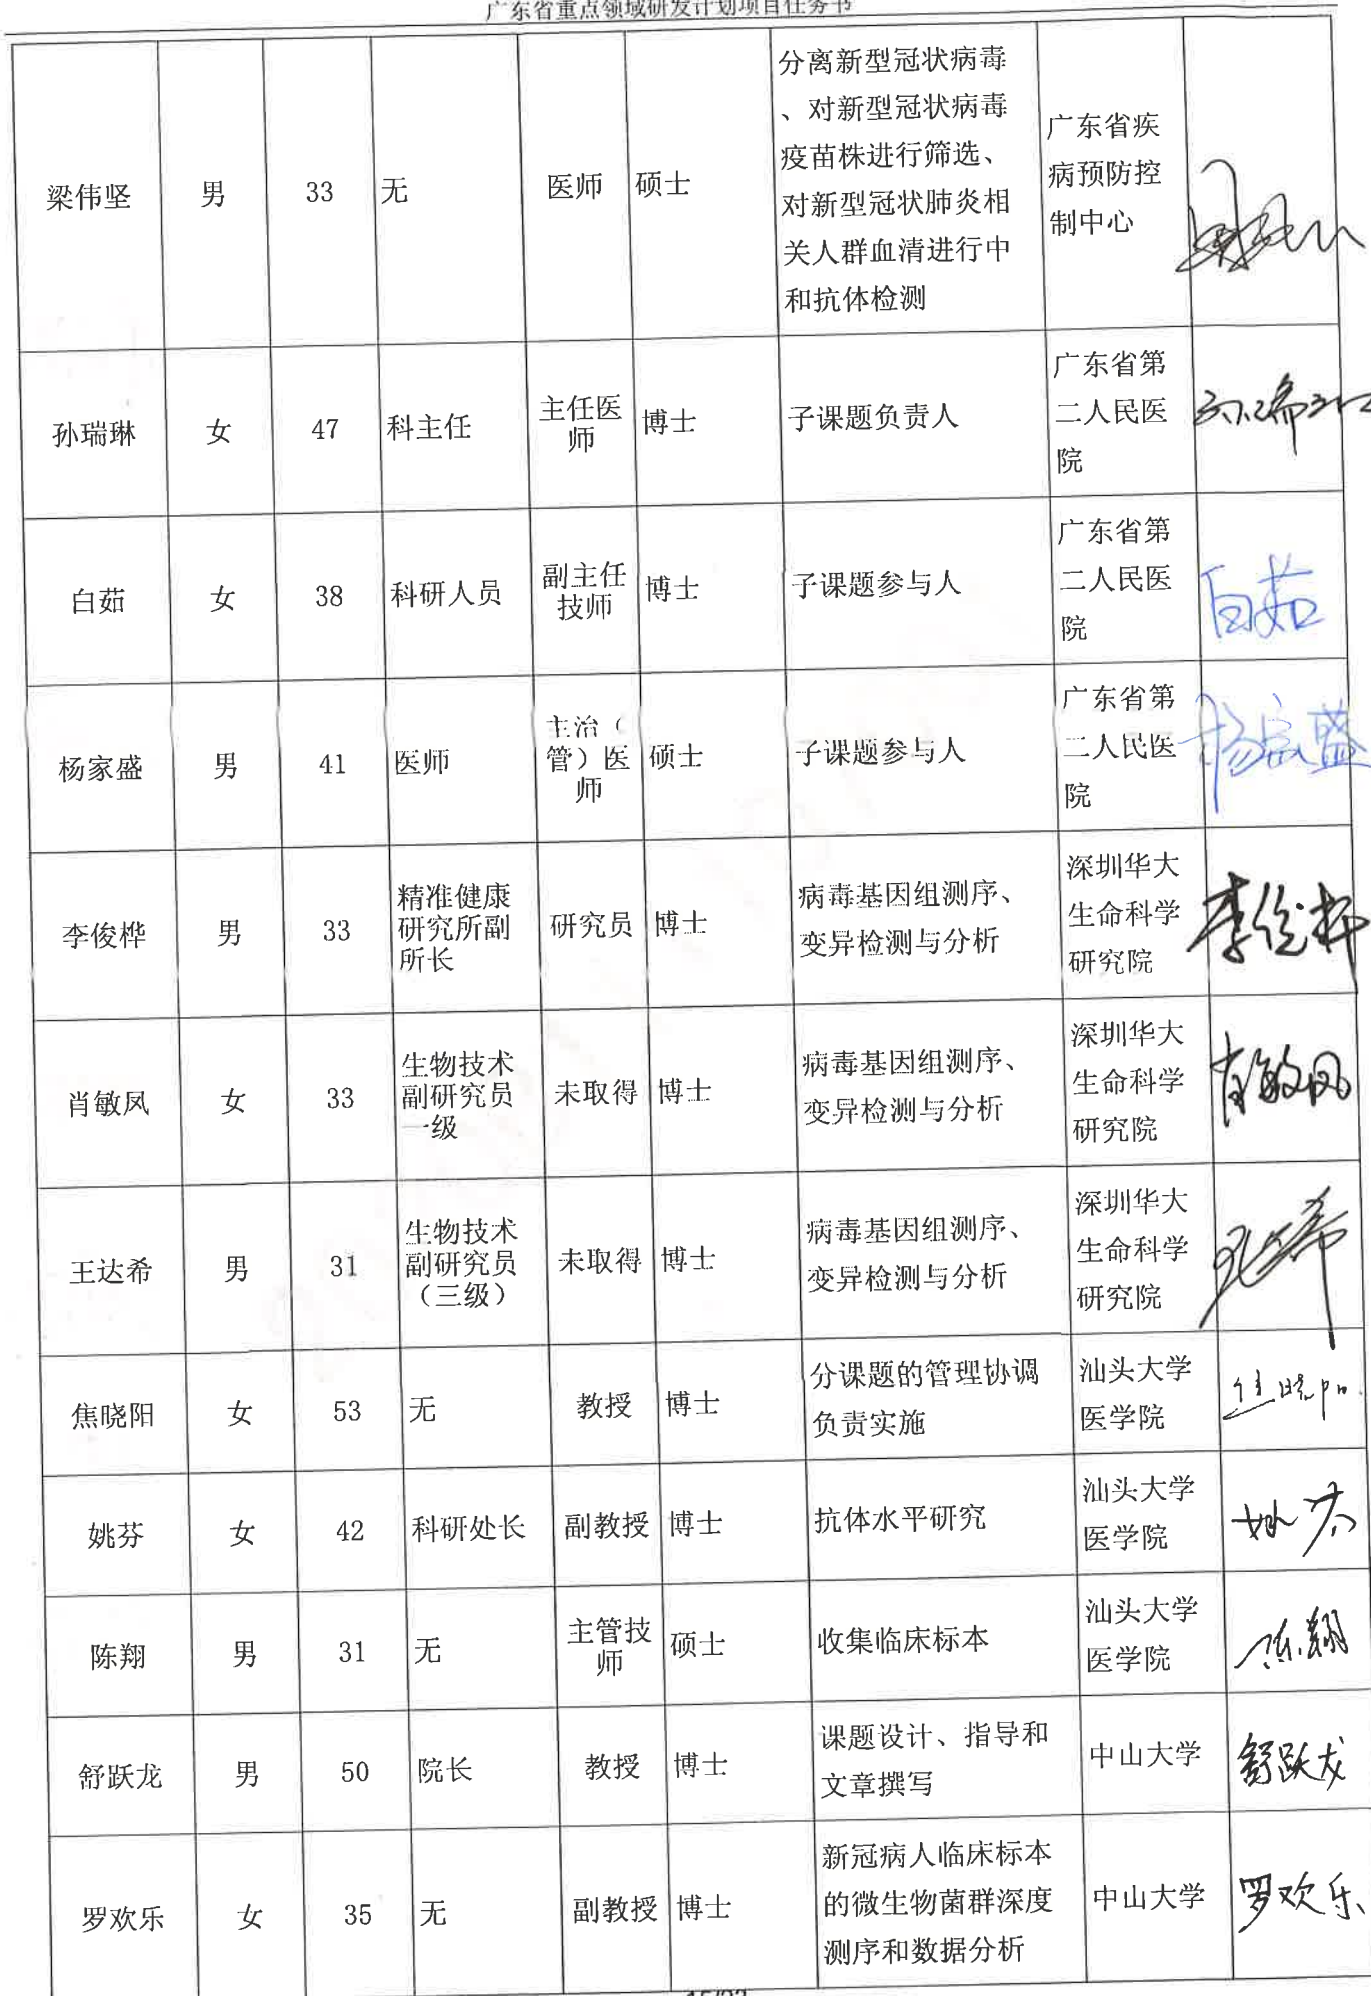 广东省重点领域研发计划项目任务书
梁伟坚 男 33 无 医师 硕士
分离新型冠状病毒
、对新型冠状病毒
疫苗株进行筛选、
对新型冠状肺炎相
关人群血清进行中
和抗体检测
广东省疾
病预防控
制中心
孙瑞琳 女 47 科主任
主任医
师
博士 子课题负责人
广东省第
二人民医
院
孙瑞琳
白茹 女 38 科研人员
副主任
技师
博士 子课题参与人
广东省第
二人民医
院
白茹
杨家盛 男 41 医师
主治（
管）医
师
硕士 子课题参与人
广东省第
二人民医
院
杨家盛
李俊桦 男 33
精准健康
研究所副
所长
研究员 博士
病毒基因组测序、
变异检测与分析
深圳华大
生命科学
研究院
李俊桦
肖敏凤 女 33
生物技术
副研究员
一级
未取得 博士
病毒基因组测序、
变异检测与分析
深圳华大
生命科学
研究院
肖敏凤
王达希 男 31
生物技术
副研究员
（三级）
未取得 博士
病毒基因组测序、
变异检测与分析
深圳华大
生命科学
研究院
王达希
焦晓阳 女 53 无 教授 博士
分课题的管理协调
负责实施
汕头大学
医学院
焦晓阳
姚芬 女 42 科研处长 副教授 博士 抗体水平研究
汕头大学
医学院
姚芬
陈翔 男 31 无
主管技
师
硕士 收集临床标本
汕头大学
医学院
陈翔
舒跃龙 男 50 院长 教授 博士
课题设计、指导和
文章撰写
中山大学
舒跃龙
罗欢乐 女 35 无 副教授 博士
新冠病人临床标本
的微生物菌群深度
测序和数据分析
中山大学
罗欢乐